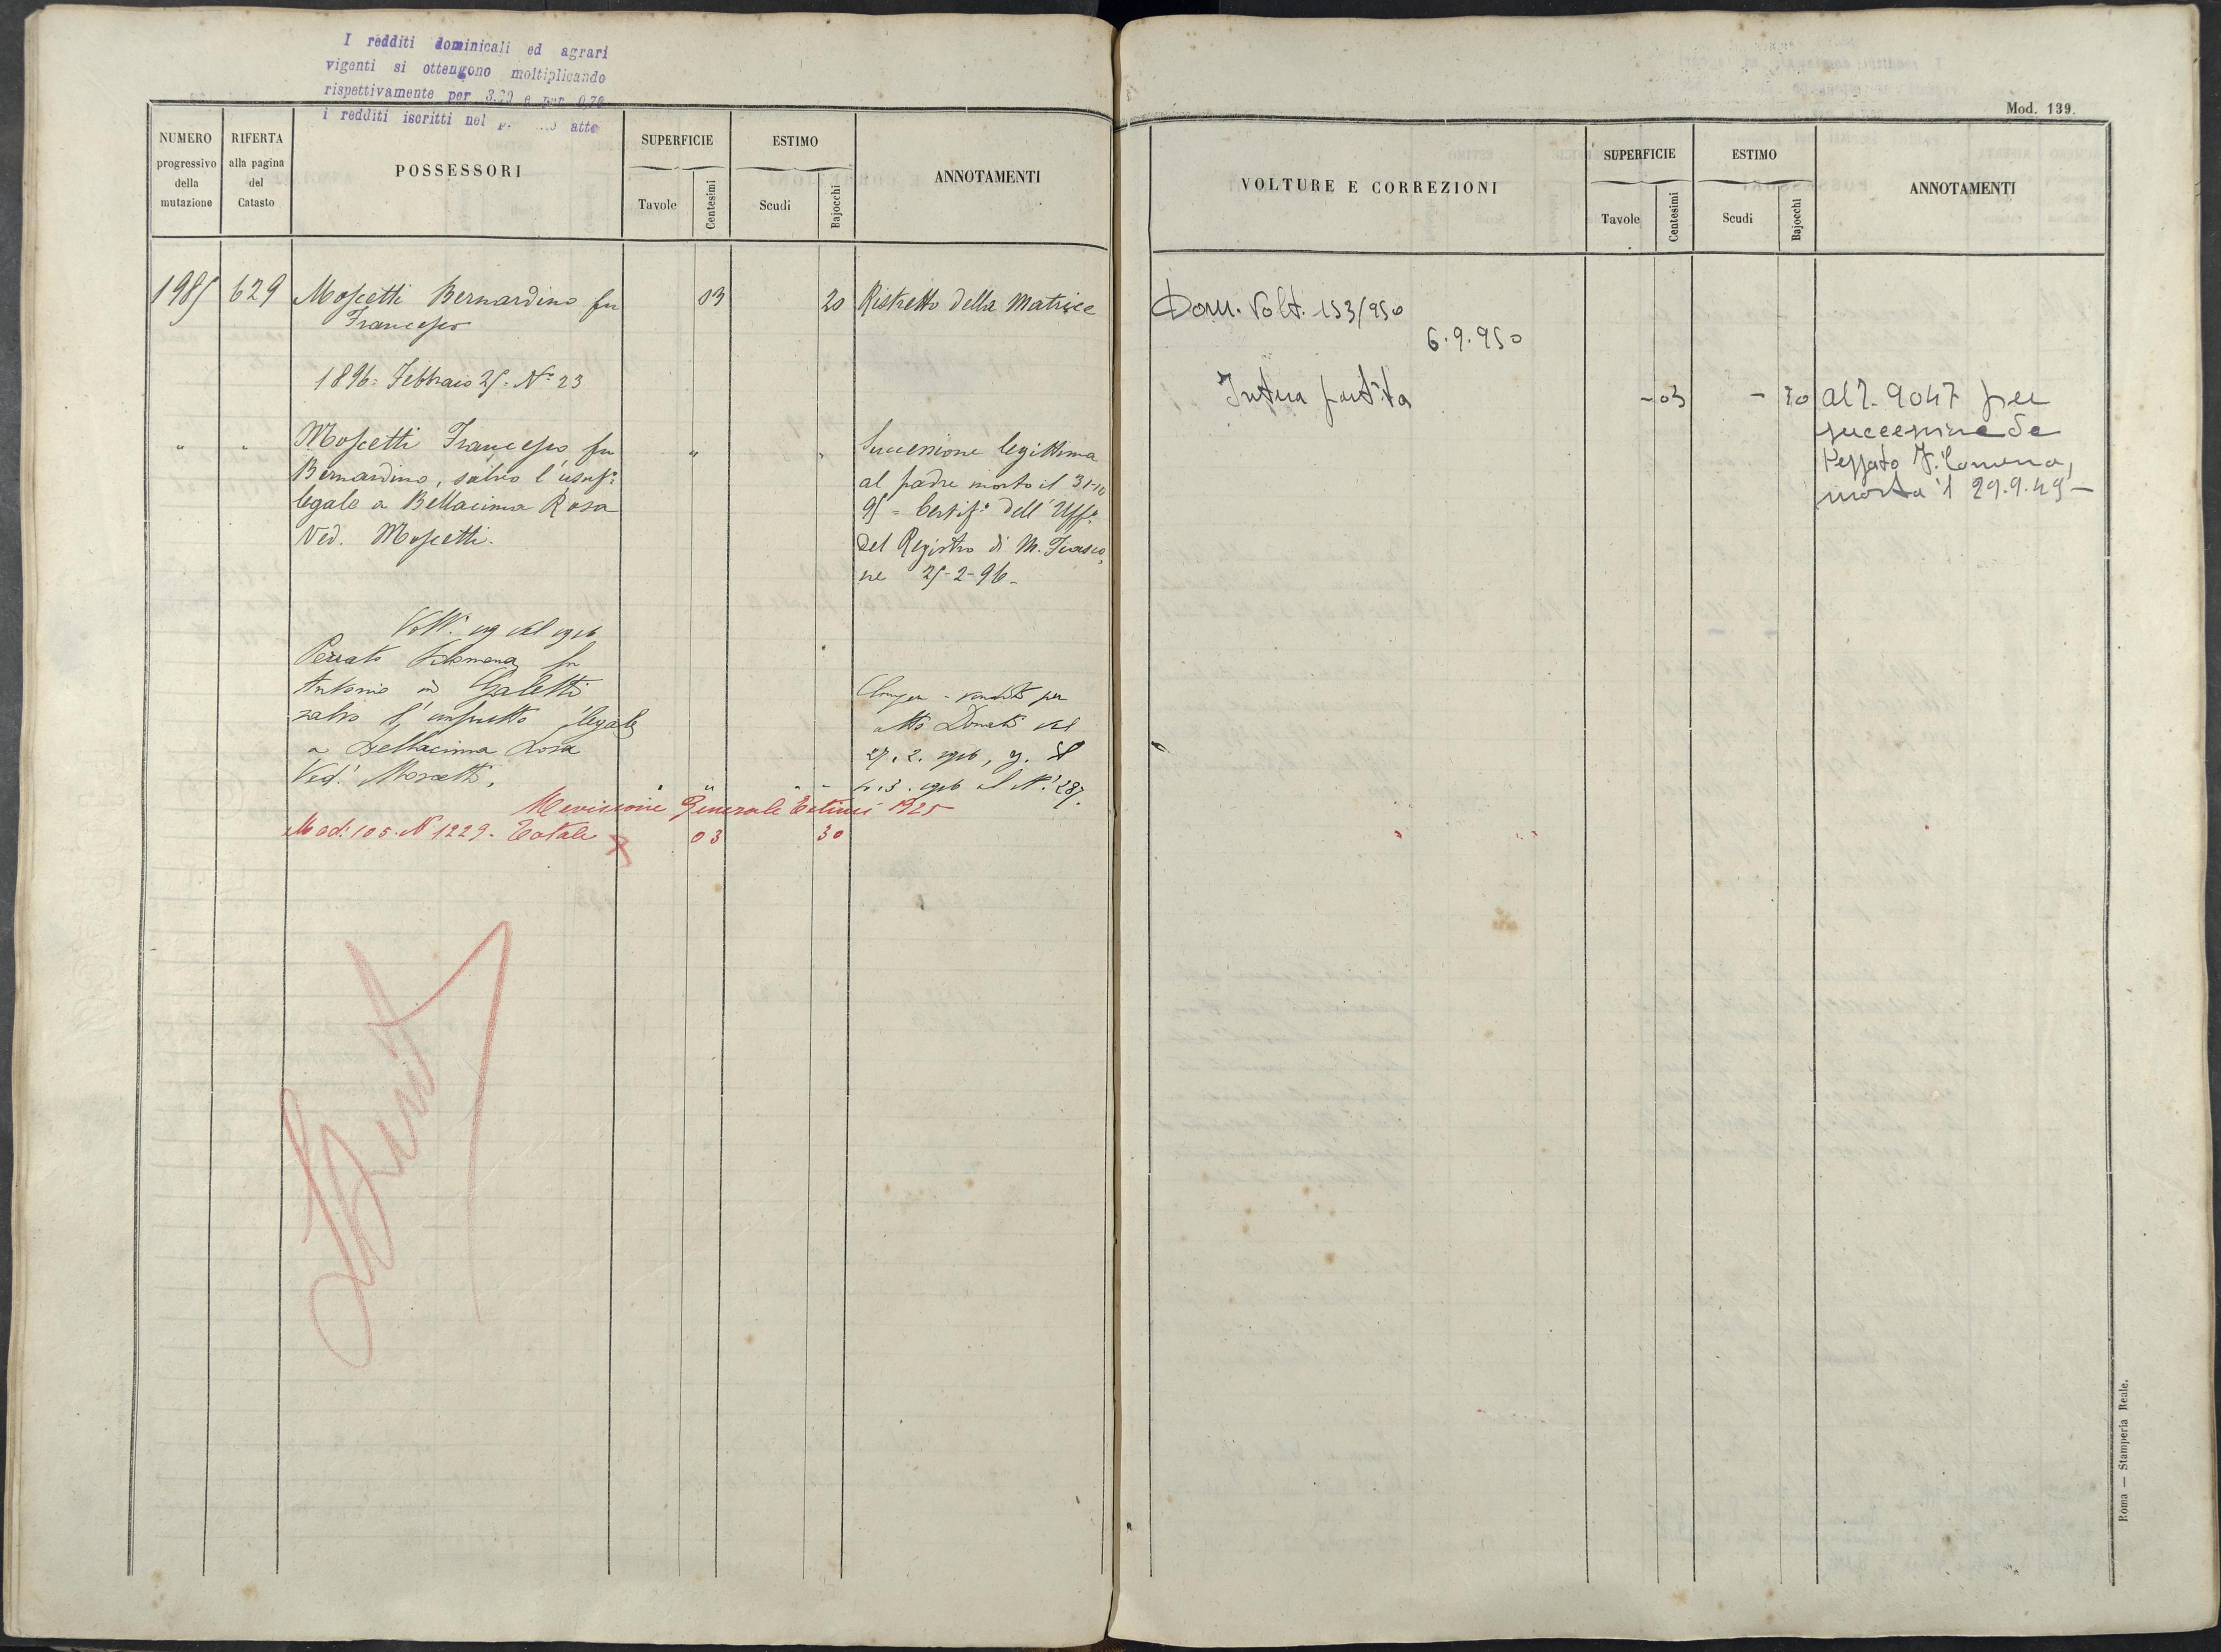 I redditi dominicali ed agrari
vigenti si ottengono moltiplicando
rispettivamente per 3.20 e per 0,70
i redditi iscritti nel atto
NUMERO
progressivo
della
mutazione
RIFERTA
alla pagina
del
Catasto
POSSESSORI
SUPERFICIE
Tavole
Centesimi
ESTIMO
Scudi
Bajocchi
ANNOTAMENTI
1985 629 Moscetti Bernardino fu 03 20 Ristretto della Matrice
Francesco
1896 = Febbraio 25. N.º 23
" " Moscetti Francesco fu " " Successione legittima
Bernardino, salvo l'usuf.º al padre morto il 31-10
legale a Bellacima Rosa 95 = Certif.º dell'Uff.º
Ved. Moscetti. del Registro di M. Fiasco,
ne 25-2-96 -
Volt. 119 del 1916
Pezzato Filomena fu
Antonio in Galetti
salvo l'usufrutto legale vendita per
a Bellacima Rosa atto Donati del
Ved.ª Moscetti. 27. 2. 1916,
" " " " 3. 1916 al N.º 287.
Revisione Generale Estimi 1925
Mod. 105. N 1229. Totale 03 30
Mod. 139.
VOLTURE E CORREZIONI
SUPERFICIE
Tavole
Centesimi
ESTIMO
Scudi
Bajocchi
ANNOTAMENTI
Dom. Volt. 153/950
6.9.950
Intera partita - 03 - 30 al 9047 per
successione de
Pezzato Filomena,
morta il 29.9.49 -
Roma — Stamperia Reale.